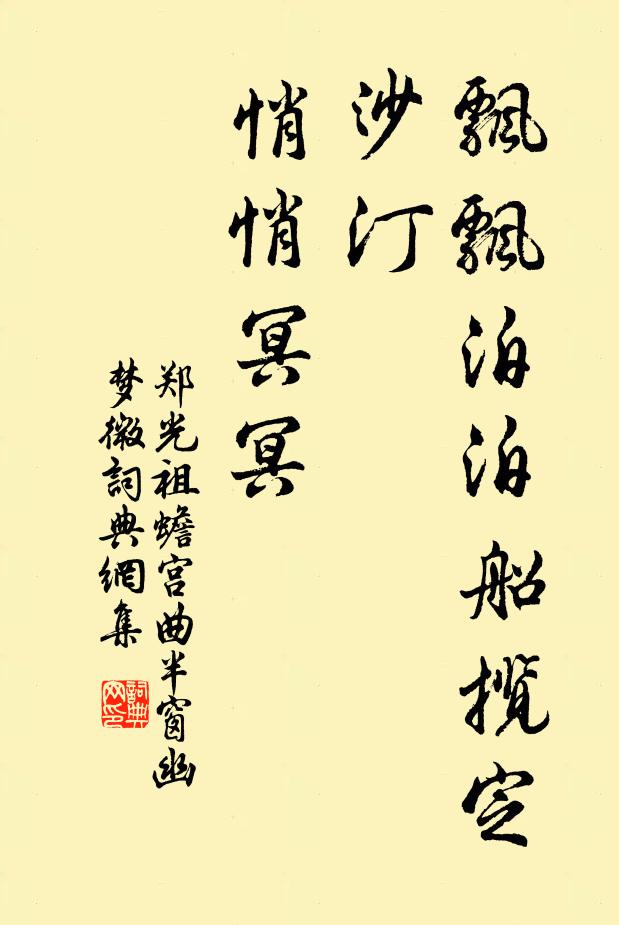 飄飄泊泊船揽定
沙汀
悄悄冥冥
郑光祖蟾宫曲半窗幽
梦微詞典網集
詞典网印